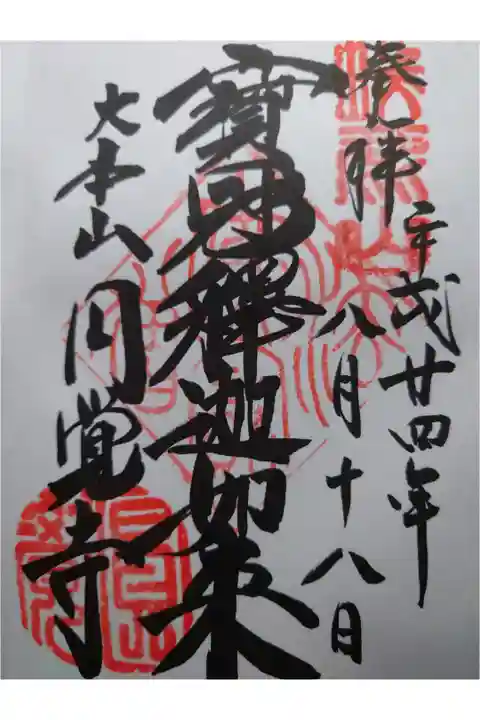 奉拝
平成廿四年
八月十八日
寶冠釋迦如来
大本山円覚寺